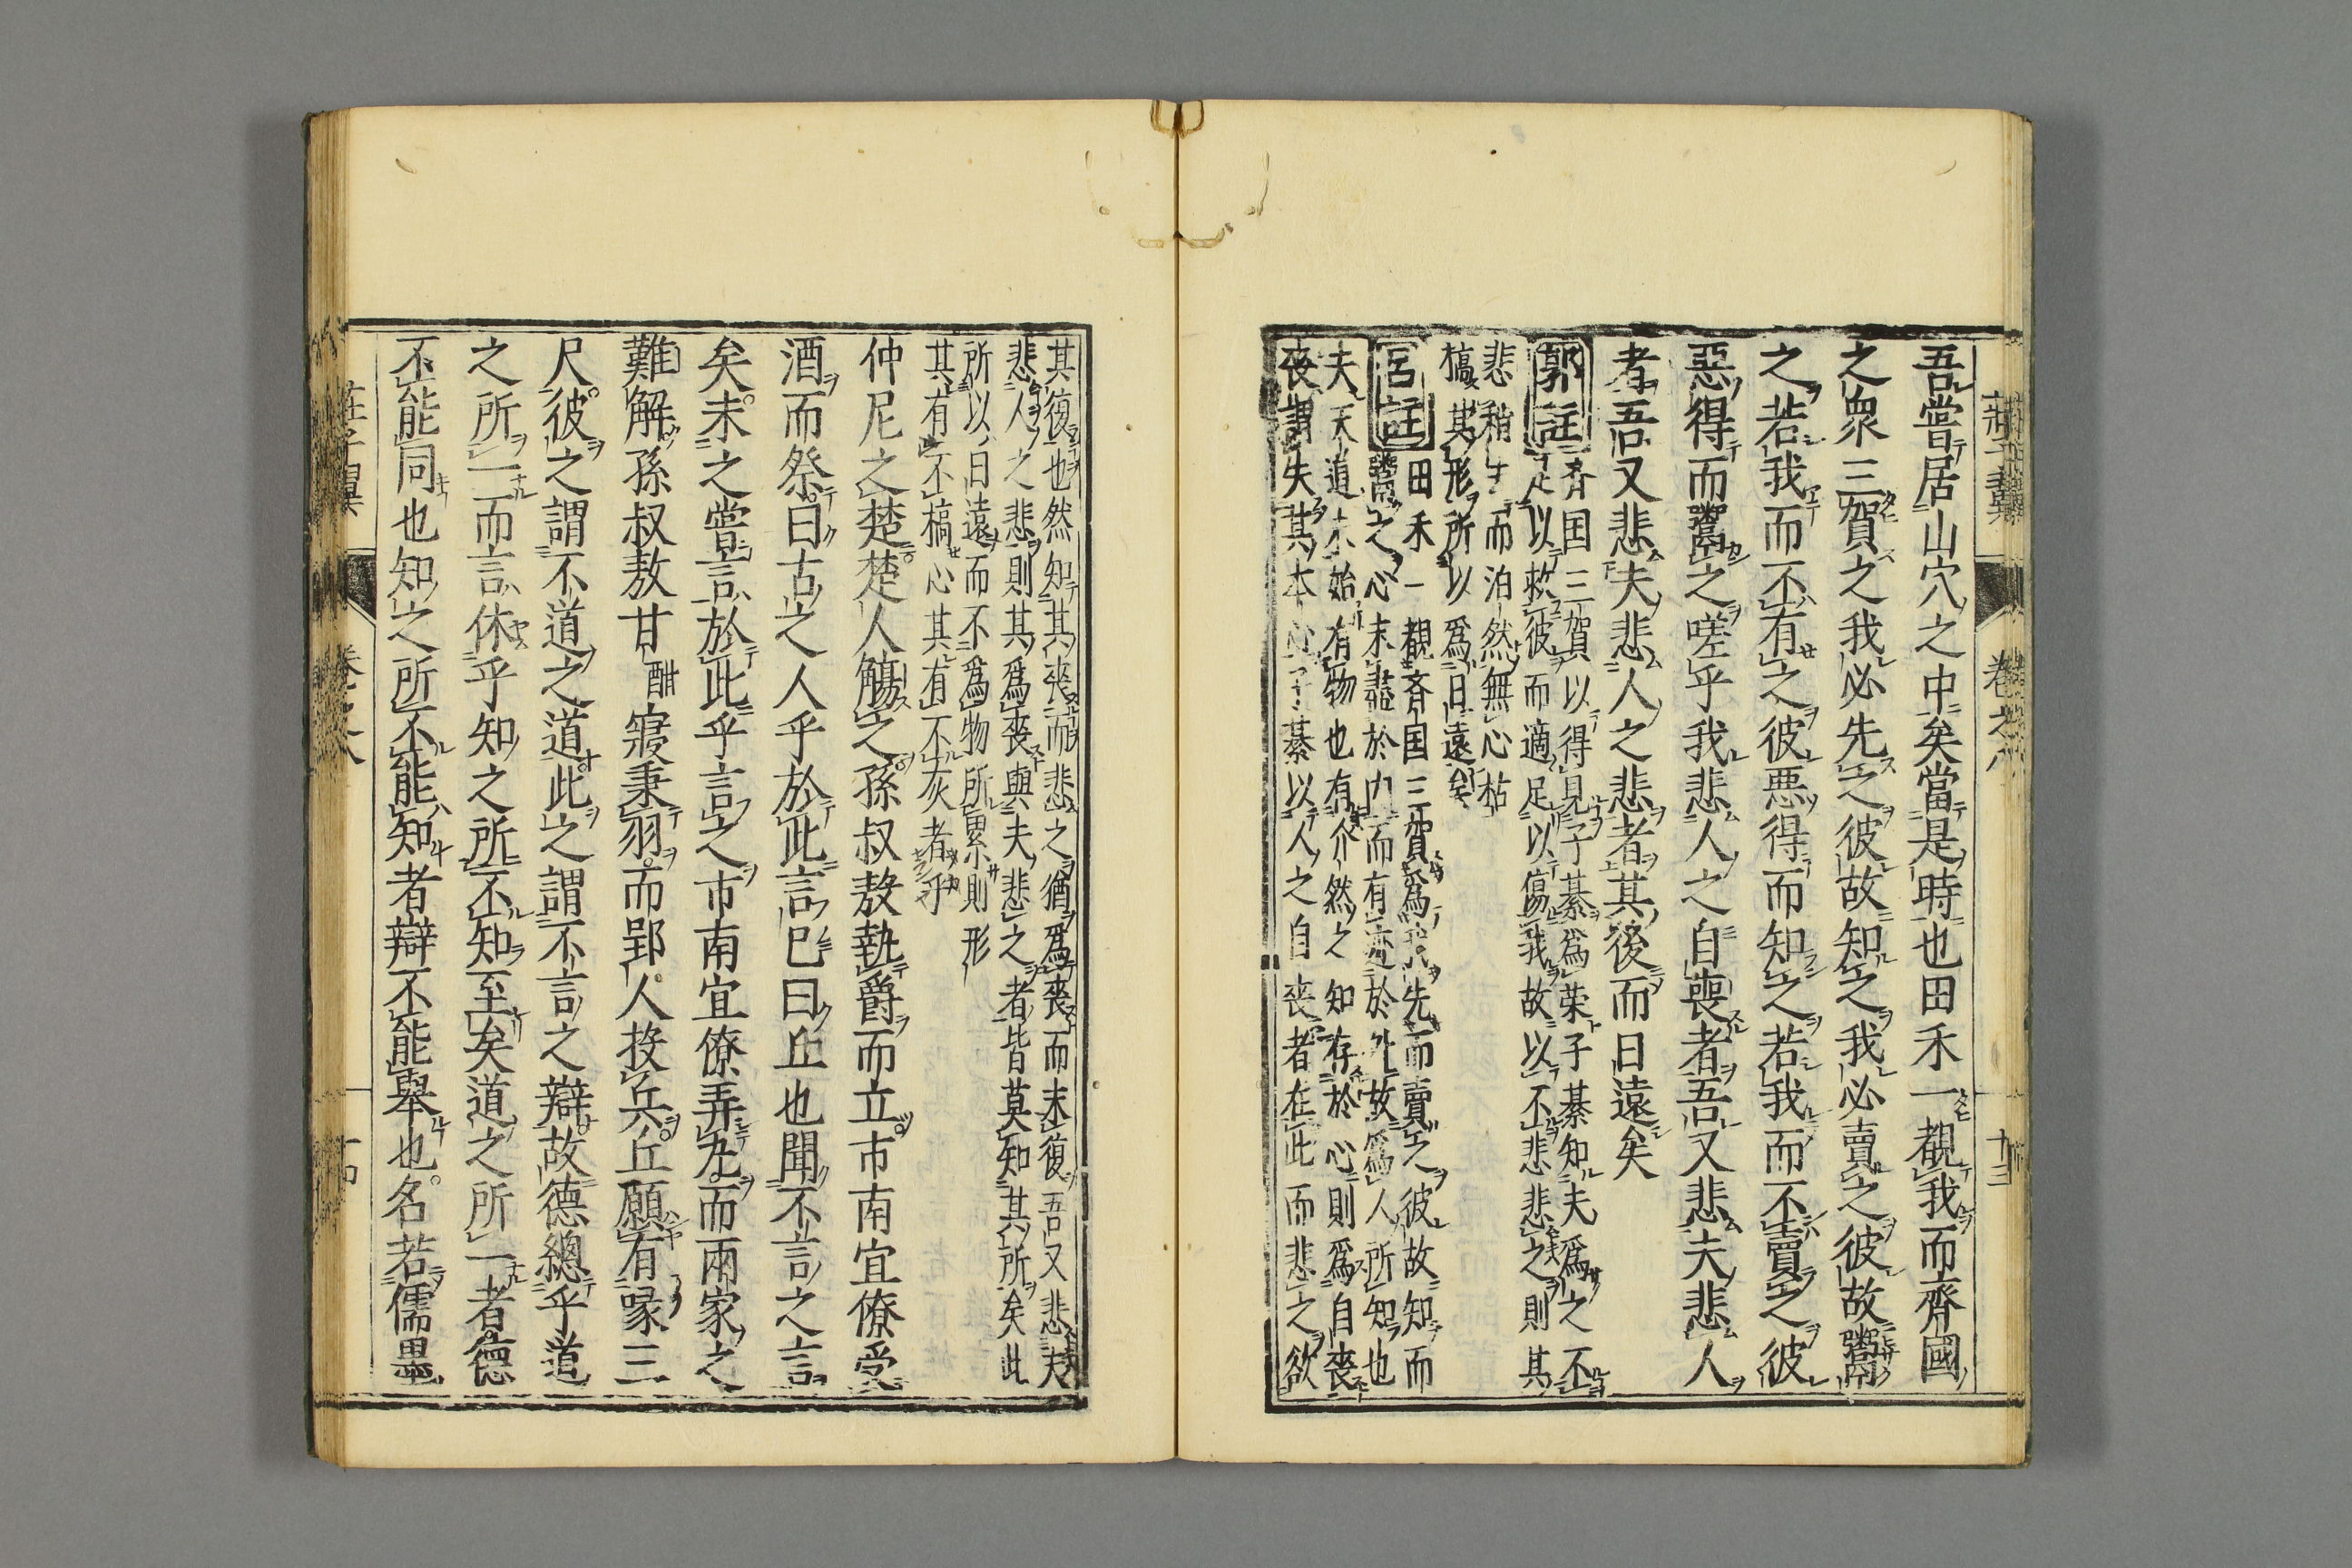 吾嘗居山穴之中矣當是時也田禾一覩我而齊國
之衆三賀之我必先之彼故知之我必賣之彼故鬻
之若我而不有之彼惡得而知之若我而不賣之彼
惡得而鬻之嗟乎我悲人之自喪者吾又悲夫悲人
者吾又悲夫悲人之悲者其後而日遠矣
郭註
斉国三賀以得見子綦爲荣子綦知夫爲之不
足以救彼而適足以傷我故以不悲悲之則其
悲稍去而泊然無心枯
槁其形所以爲日遠矣
呂註
田禾一覩斉国三賀爲我先而賣之彼故知而
鬻之心未盡於内而有迹於外故爲人所知也
夫天道未始有物也有介然之知存於心則爲自喪
喪謂失其本心子綦以人之自喪者在此而悲之欲
莊子翼
卷之八
十三
其復也然知其喪而悲之猶爲喪而未復吾又悲夫
悲人之悲則其爲喪與夫悲之者皆莫知其所矣此
所以日遠而不爲物所累則形
其有不槁心其有不灰者乎
仲尼之楚楚人觴之孫叔敖執爵而立市南宜僚受
酒而祭曰古之人乎於此言已曰丘也聞不言之言
矣未之嘗言於此乎言之市南宜僚弄丸而兩家之
難解孫叔敖甘酣寢秉羽而郢人投兵丘願有喙三
尺彼之謂不道之道此之謂不言之辯故德總乎道
之所一而言休乎知之所不知至矣道之所一者德
不能同也知之所不能知者辯不能舉也名若儒墨
莊子翼
卷之八
十四